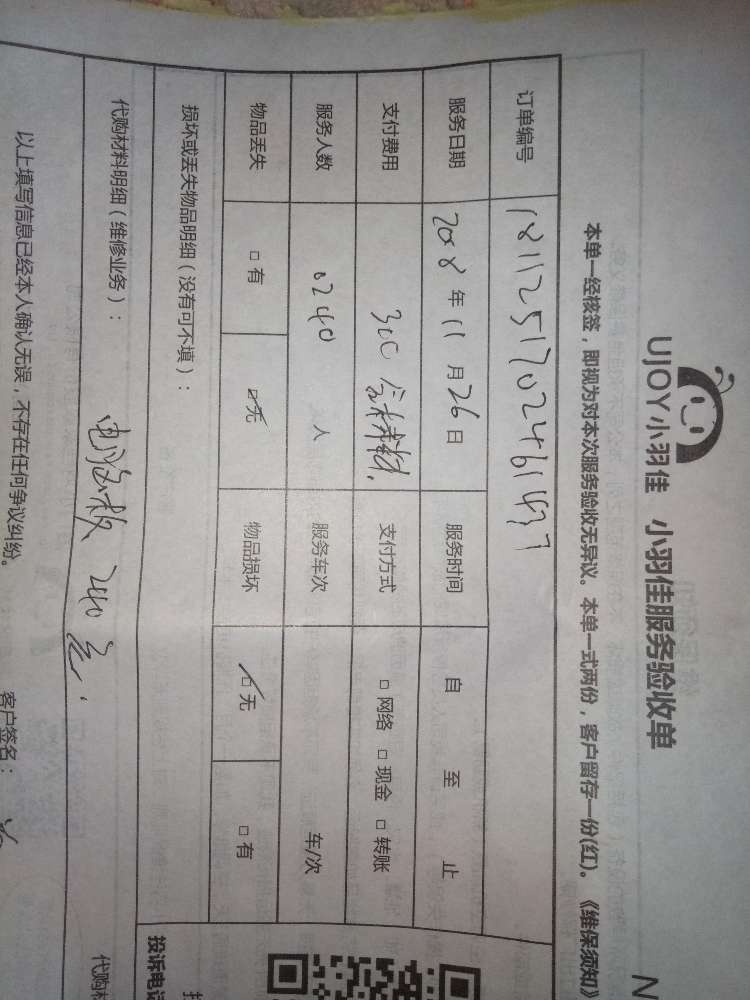 UJOY小羽佳 小羽佳服务验收单
N
本单一经核签，即视为对本次服务验收无异议。本单一式两份，客户留存一份(红)。《维保须知》
订单编号
服务日期 2018 年 11 月 26 日 服务时间 自 至 止
支付费用 300 含材料. 支付方式 □网络 □现金 □转账
服务人数 0240 人 服务车次 车/次
物品丢失 □有 ☑无 物品损坏 ☑无 □有
损坏或丢失物品明细（没有可不填）：
投诉电话
代购材料明细（维修业务）：
电源板 240元.
以上填写信息已经本人确认无误，不存在任何争议纠纷。
客户签名：